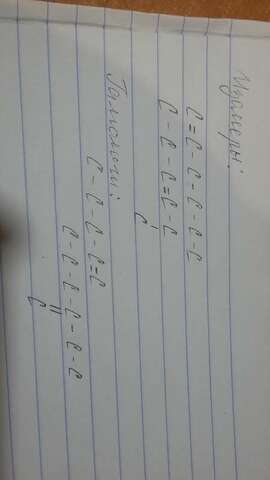 Изомеры:
C=C-C-C-C-C
C-C-C=C-C
C
Гомологи:
C-C-C-C=C
C-C-C-C-C-C
C